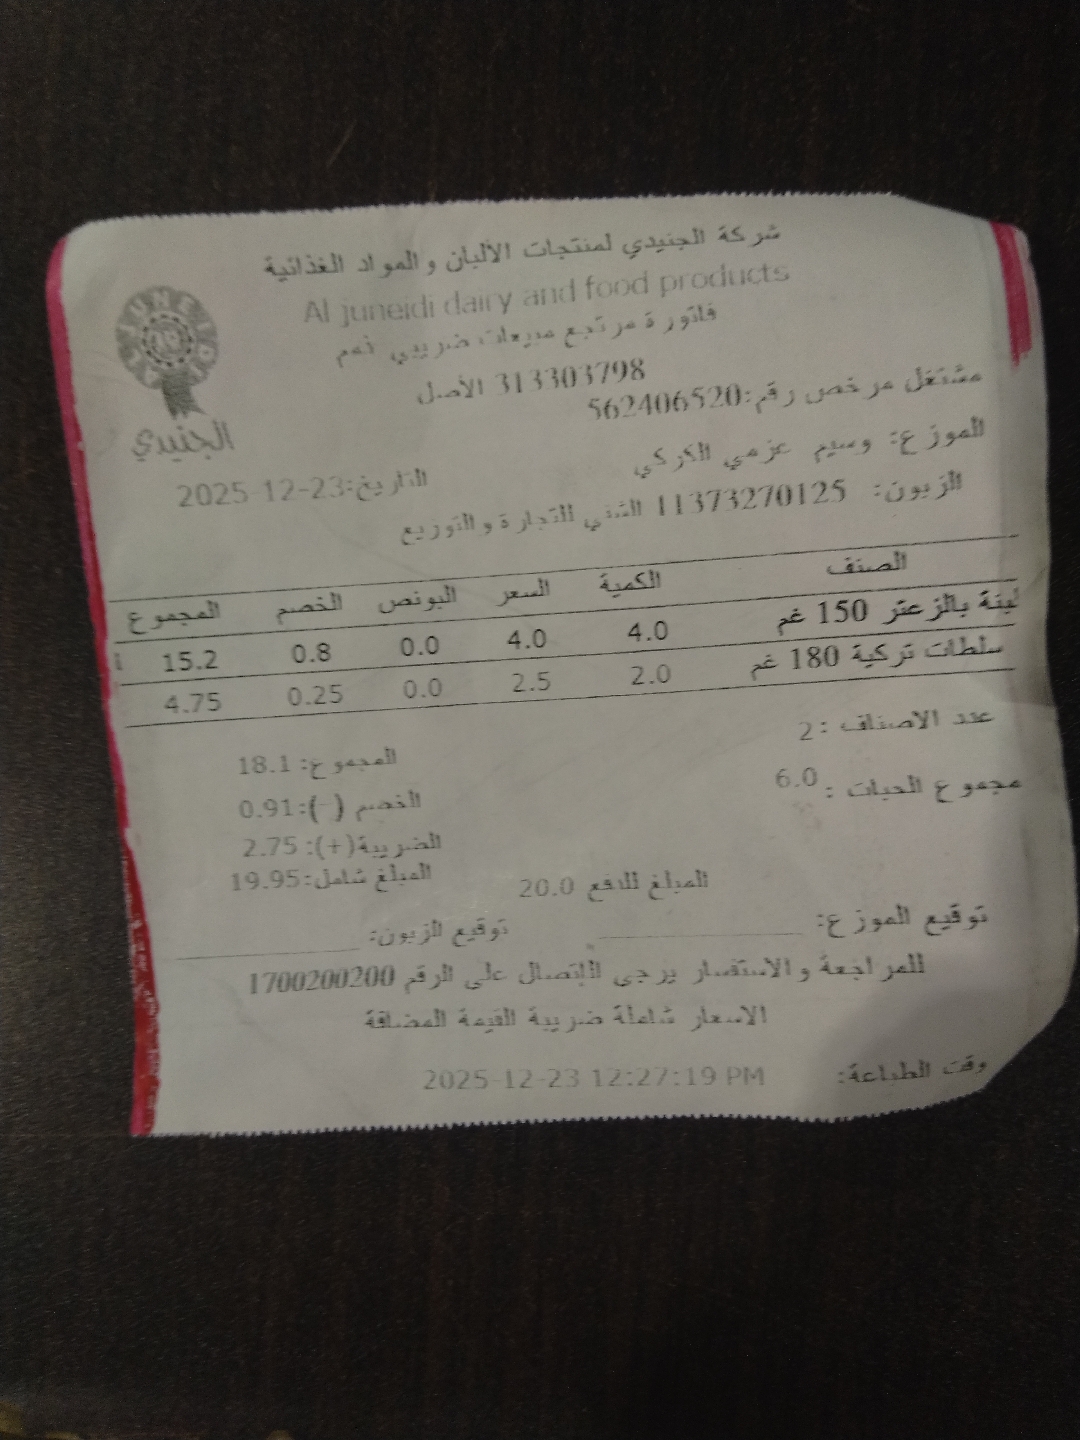 شركة الجنيدي لمنتجات الألبان والمواد الغذائية
Al juneidi dairy and food products
فاتورة مرتجع مبيعات ضريبي ذمم
313303798 الأصل
مشتغل مرخص رقم:562406520
الموزع: وسيم عزمي الكركي
التاريخ:23-12-2025
الزبون: 11373270125 الشني للتجارة والتوزيع
JUNEIDI
الجنيدي
الصنف الكمية السعر البونص الخصم المجموع
لبنة بالزعتر 150 غم 4.0 4.0 0.0 0.8 15.2
سلطات تركية 180 غم 2.0 2.5 0.0 0.25 4.75
عدد الاصناف :2
المجموع: 18.1
مجموع الحبات : 6.0
الخصم (-):0.91
الضريبة(+): 2.75
المبلغ شامل:19.95
المبلغ للدفع 20.0
توقيع الموزع:
توقيع الزبون:
للمراجعة والاستفسار يرجى الإتصال على الرقم 1700200200
الاسعار شاملة ضريبة القيمة المضافة
وقت الطباعة: 2025-12-23 12:27:19 PM